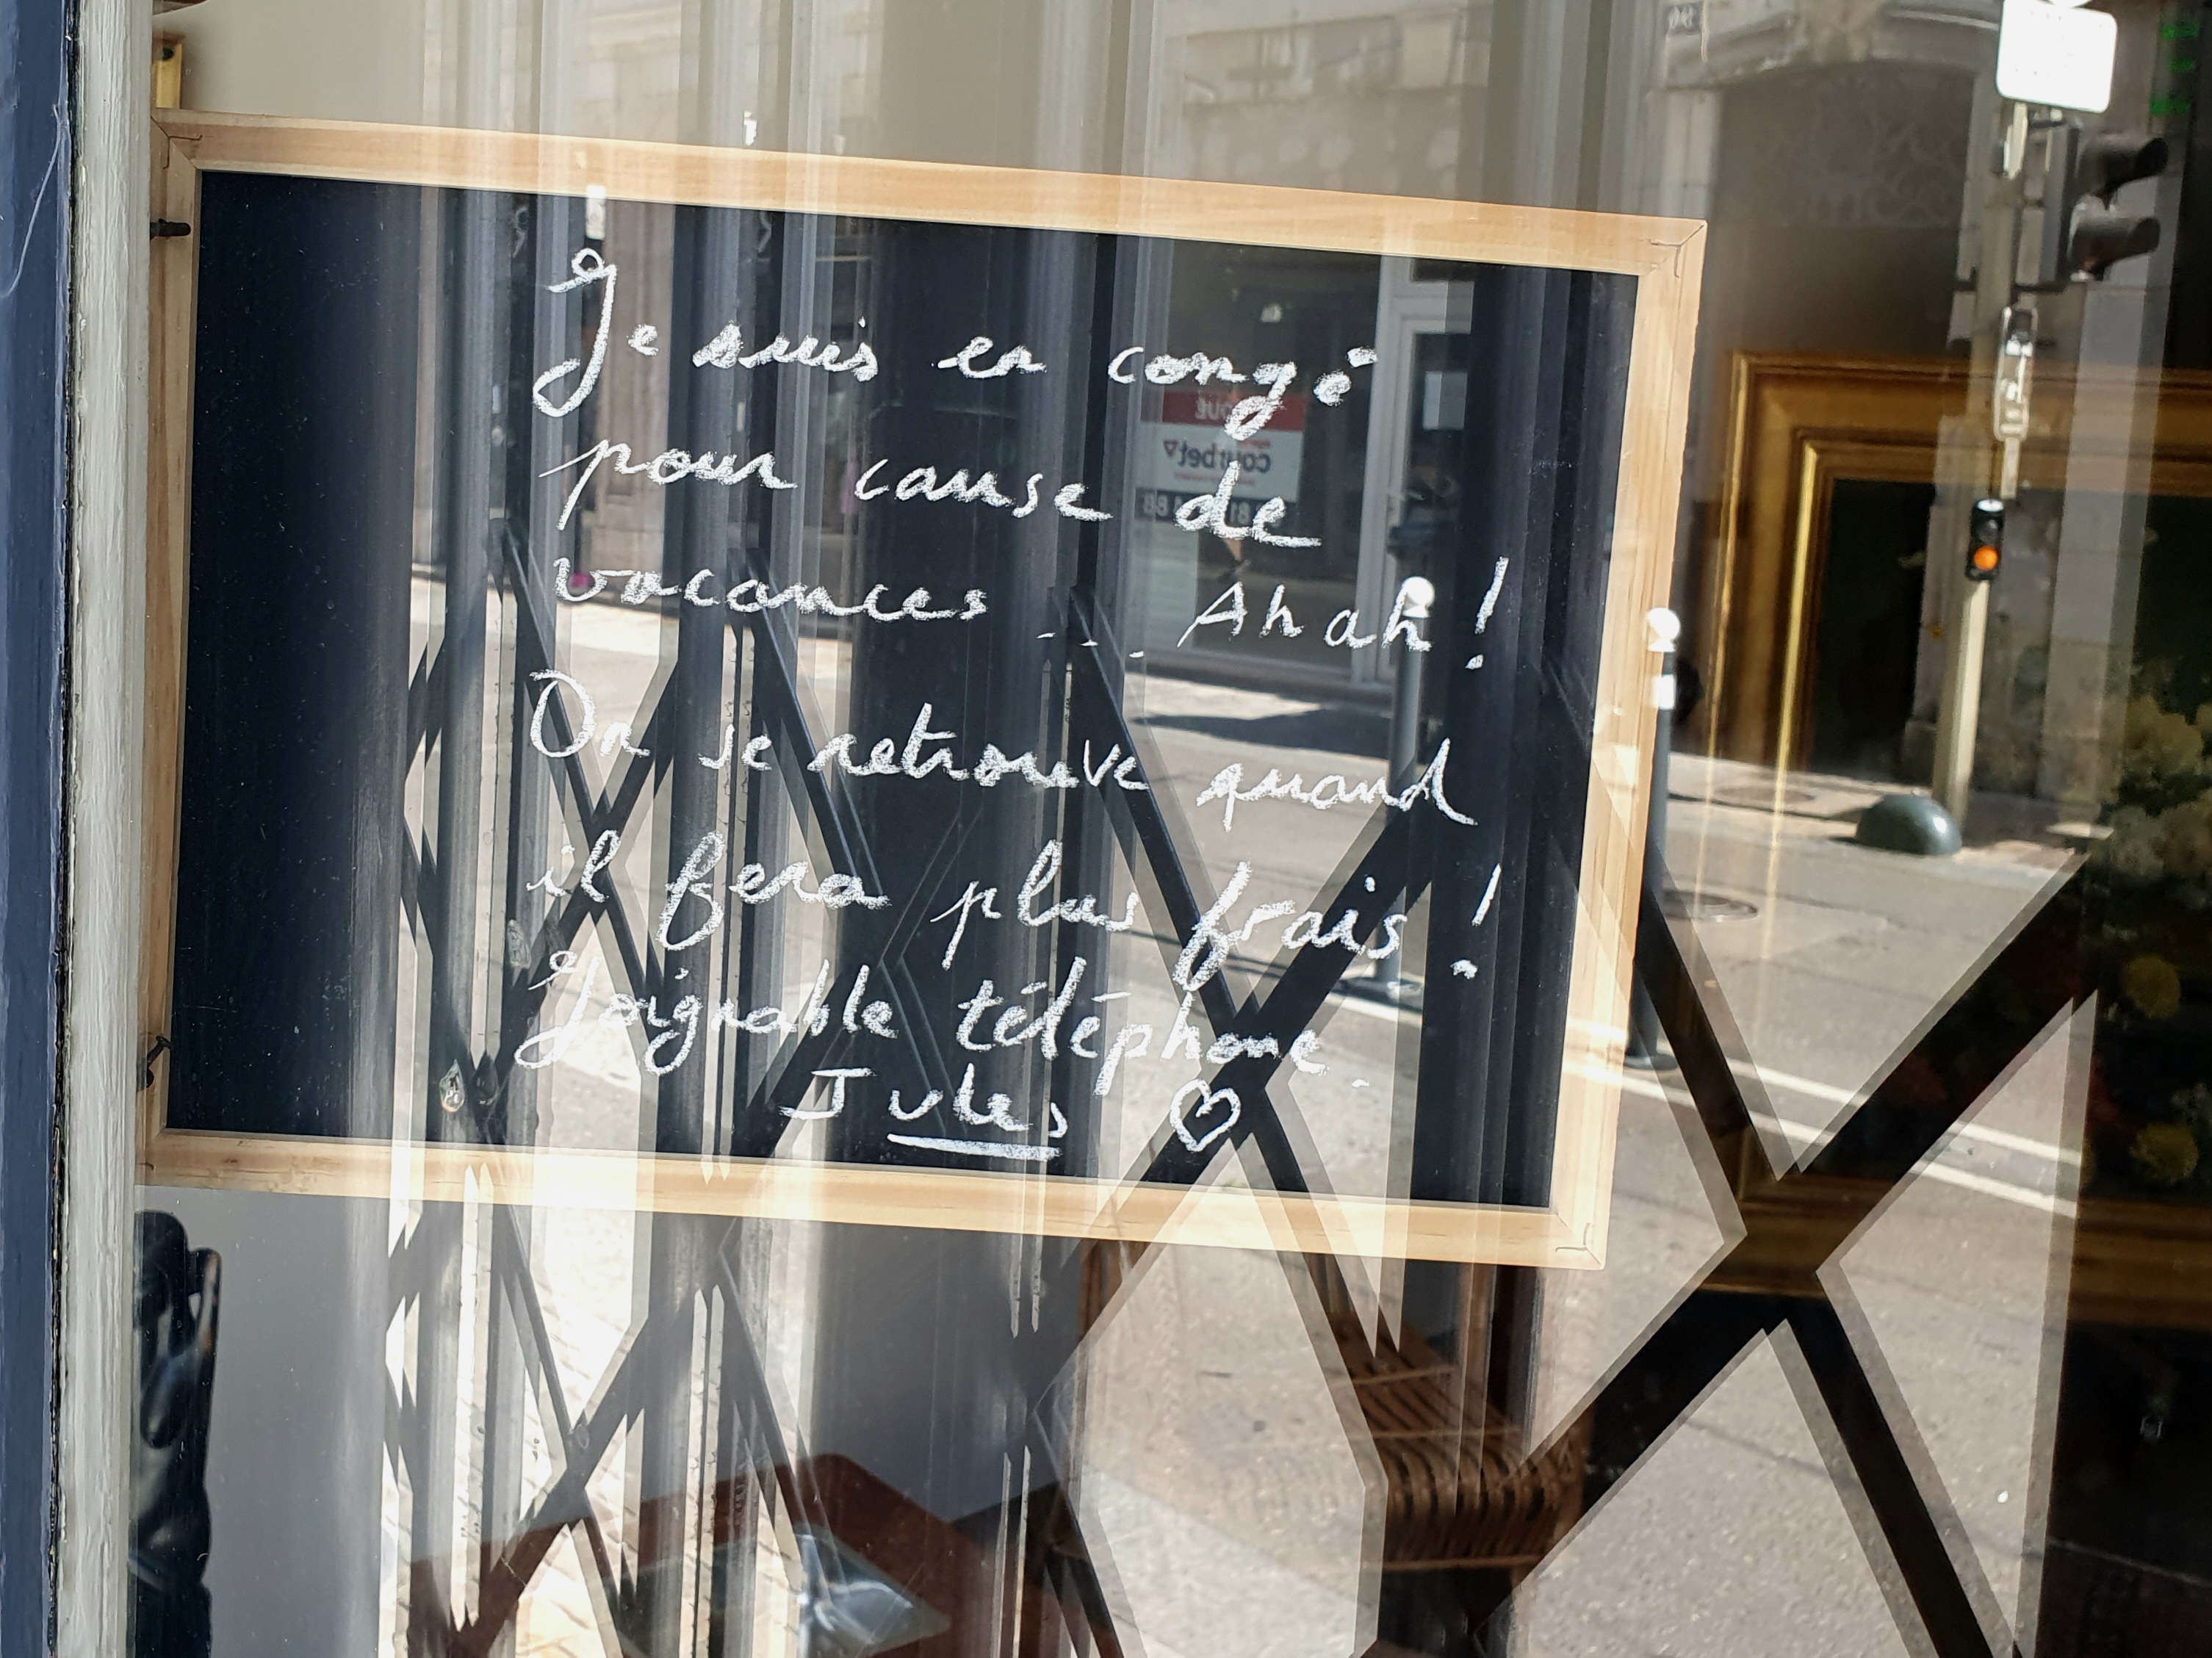 Je suis en congé
pour cause de
vacances ... Ahah !
On se retrouve quand
il fera plus frais !
Joignable téléphone.
Jules ♡
Courbet